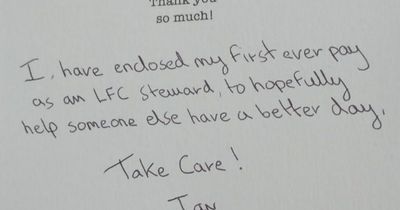 Thank you
so much!
I, have enclosed my first ever pay
as an LFC Steward, to hopefully
help someone else have a better day.
Take Care!
Ian